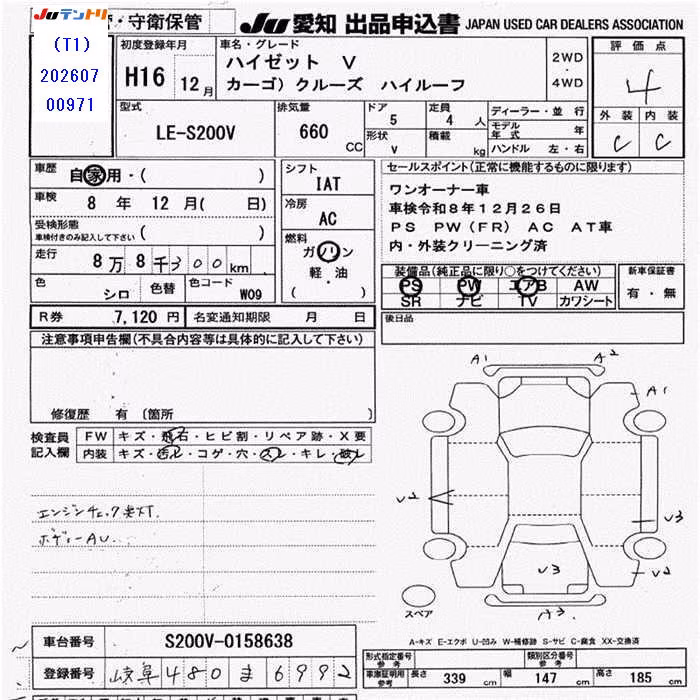 Juテントリ
・守衛保管
Ju 愛知 出品申込書 JAPAN USED CAR DEALERS ASSOCIATION
(T1)
202607
00971
初度登録年月
H16 12月
車名・グレード
ハイゼット V
カーゴ) クルーズ ハイルーフ
2WD
・
4WD
評価点
4
外装 内装
C C
型式
LE-S200V
排気量
660 CC
ドア
5
形状
V
定員
4 人
積載
kg
ディーラー・並行
モデル年式 年
ハンドル 左・右
車歴
自家用・( )
車検
8 年 12 月( 日)
受検形態
車検付きのみ記入して下さい ( )
走行
8万8千300km
色
シロ
色替
色コード
W09
シフト
IAT
冷房
AC
燃料
ガソリン
軽・油
( )
セールスポイント(正常に機能するものに限ります)
ワンオーナー車
車検令和8年12月26日
PS PW(FR) AC AT車
内・外装クリーニング済
装備品(純正品に限り○をつけてください)
PS PW エアB AW
SR ナビ TV カワシート
新車保証書
有・無
R券 7,120 円
名変通知期限 月 日
後日品
注意事項申告欄(不具合内容等は具体的に記入して下さい)
修復歴 有 〔箇所 〕
検査員
記入欄
FW キズ・飛石・ヒビ割・リペア跡・X要
内装 キズ・汚れ・コゲ・穴・スレ・キレ・破れ
エンジンチェック点灯.
ボディーAU.
A1 A2
A1
U2
U3
U3
U2
A3
スペア
A-キズ E-エクボ U-凹み W-補修跡 S-サビ C-腐食 XX-交換済
車台番号 S200V-0158638
登録番号 岐阜 480 ま 6992
形式指定番号
参考
類別区分番号
参考
車庫証明用
参考
長さ 339 cm
幅 147 cm
高さ 185 cm